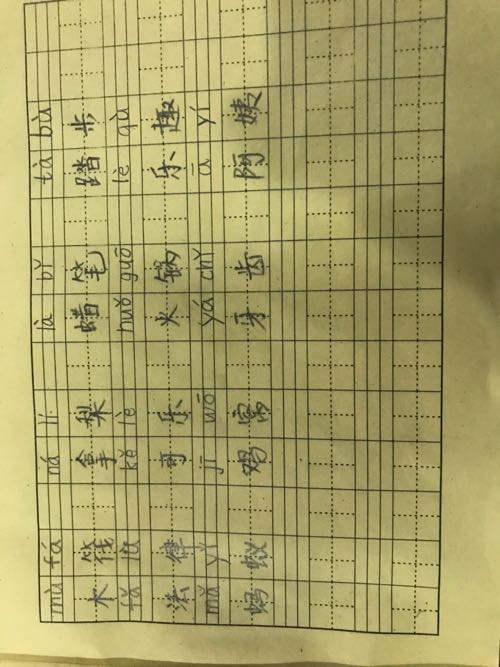 mù fá ná lí là bǐ tà bù
木筏 拿梨 蜡笔 踏步
fǎ lǜ kě lè huǒ guō lè qù
法律 哥乐 火锅 乐趣
mǎ yǐ jī wō yá chǐ ā yí
蚂蚁 鸡窝 牙齿 阿姨